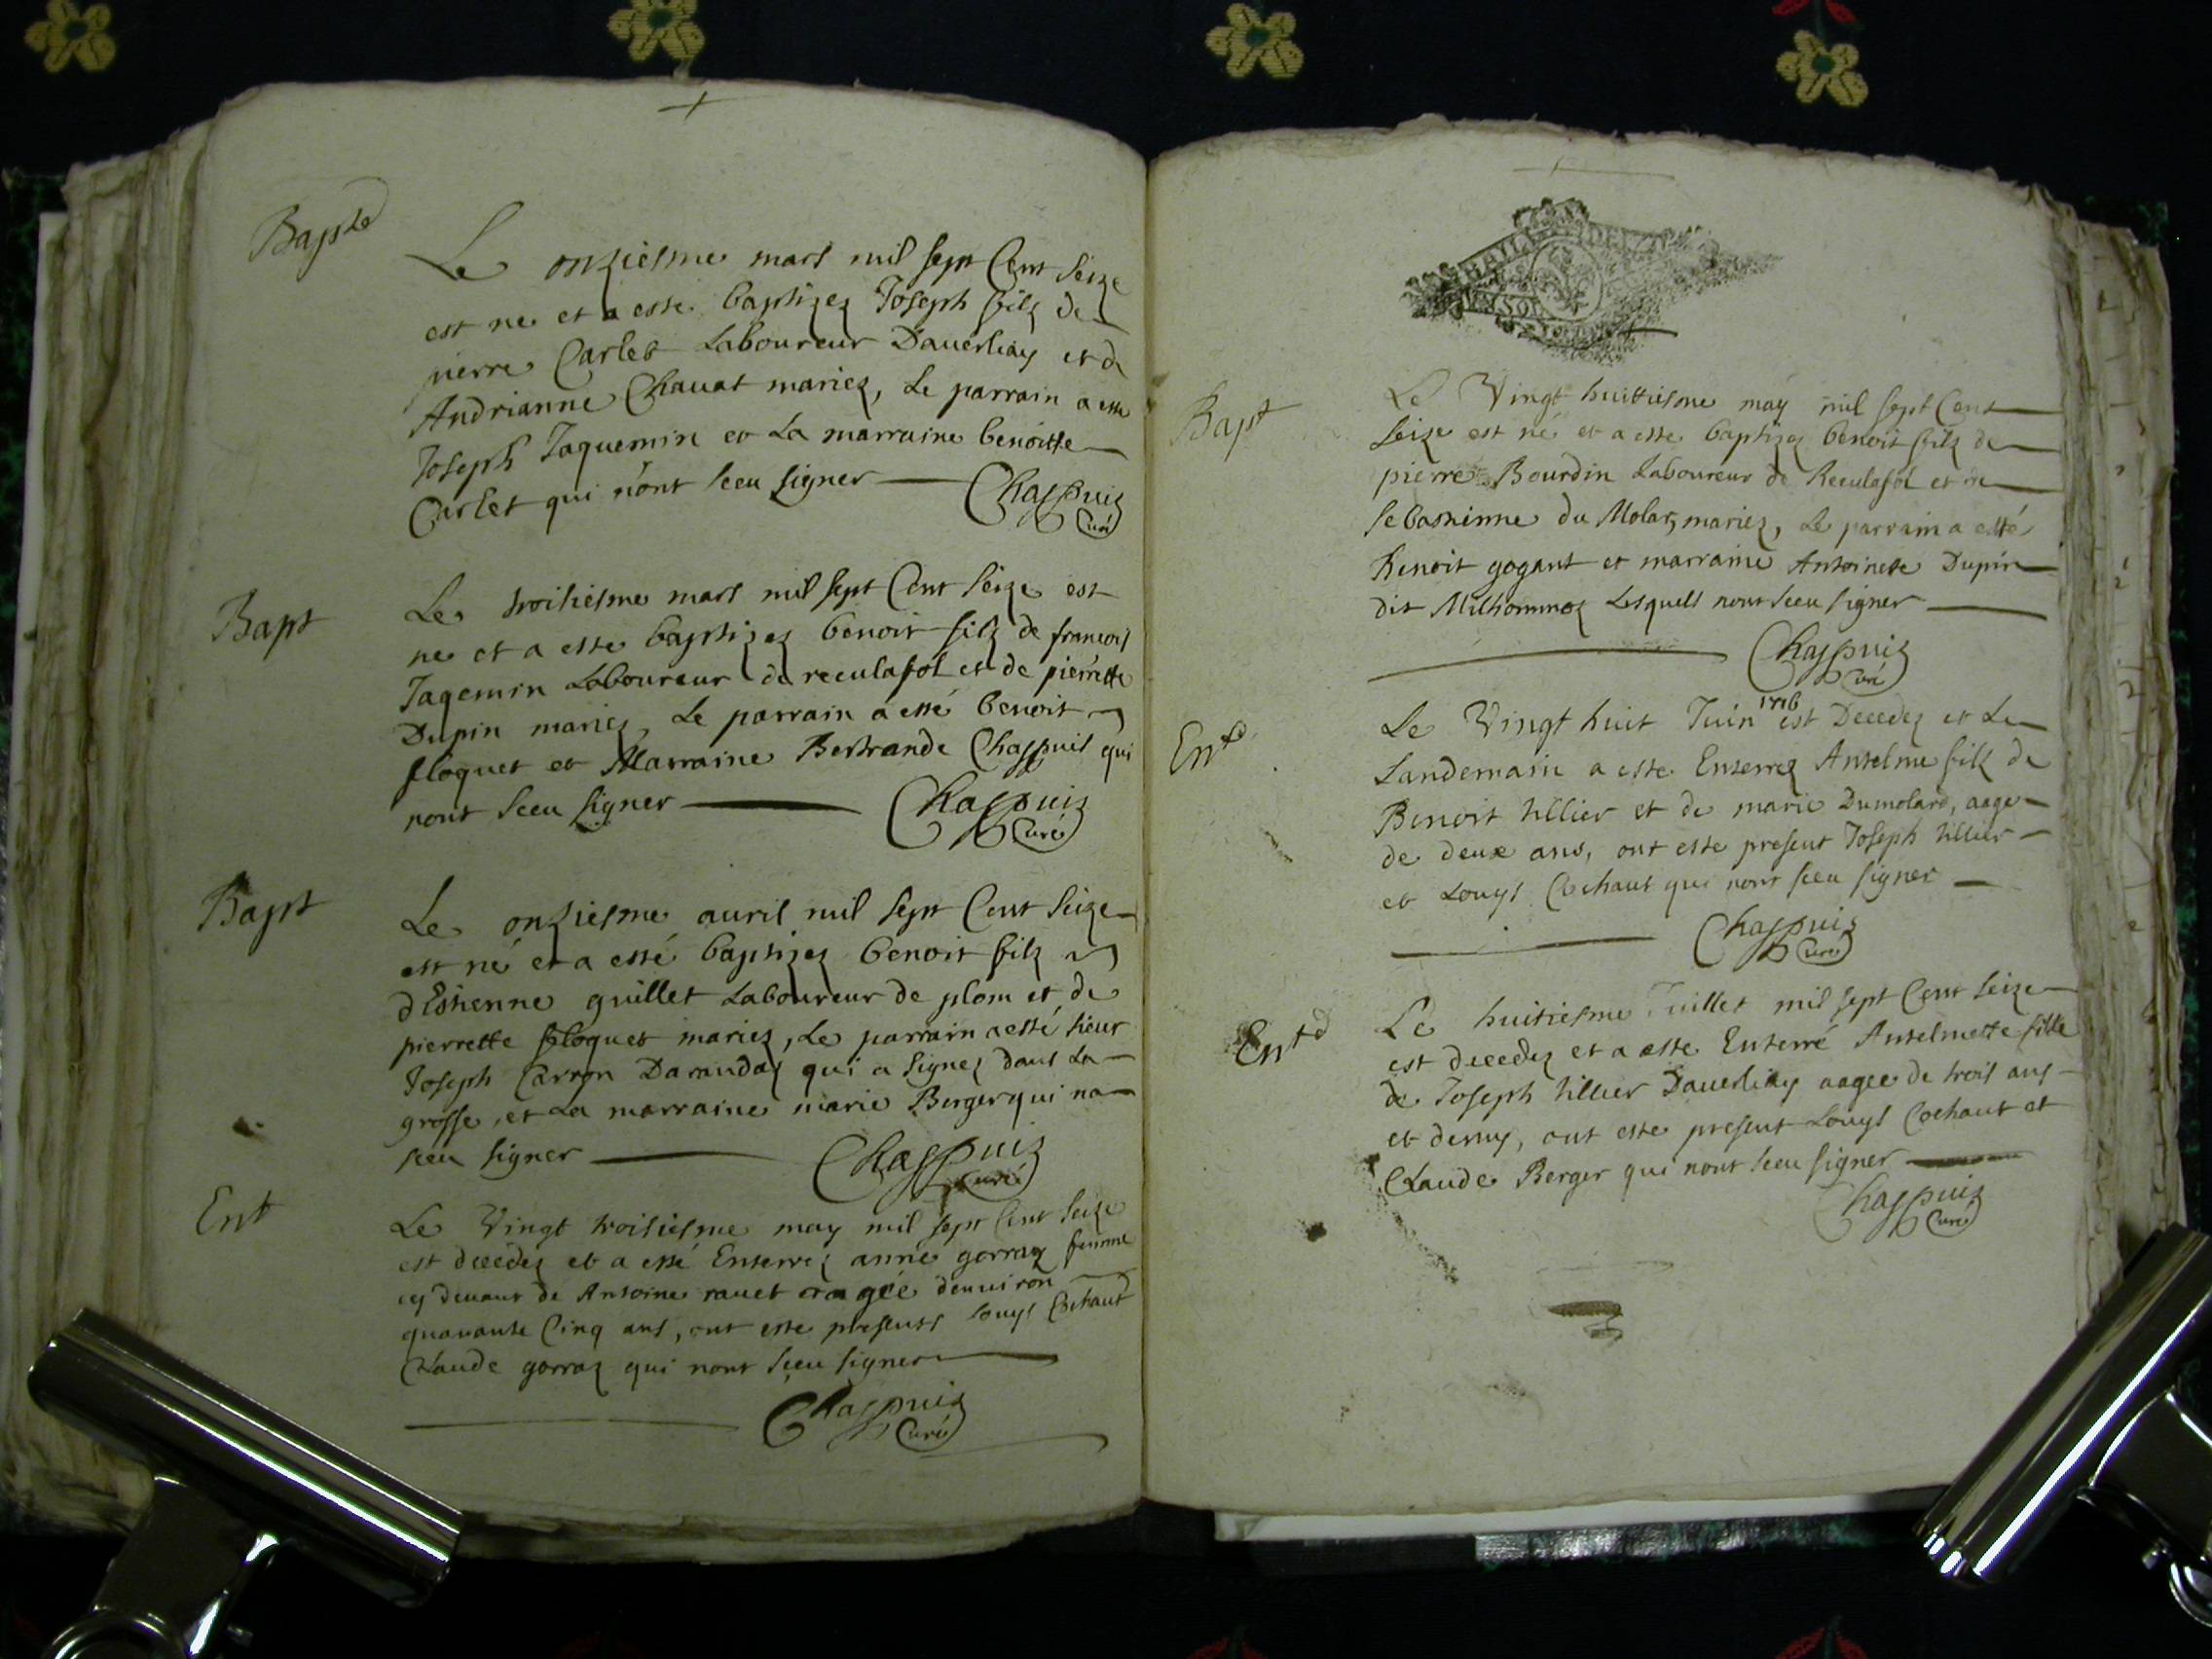 Bapte
Le onziesme mars mil sept Cent seize
est ne et a esté baptizez Joseph filz de
pierre Carlet Laboureur Daverliaz et de
Andrianne Chavat mariez, Le parrain a esté
Joseph Jaquemin et La marraine benoitte
Carlet qui n'ont sceu signer
Chappuiz
Curé
Bapt
Le troisiesme mars mil sept Cent seize est
ne et a esté baptizez benoit filz de francois
Jaqemin Laboureur de reculafol et de pierrette
Dupin mariez, Le parrain a esté benoit
floquet et Marraine Bertrande Chappuis qui
nont sceu signer
Chappuiz
Curé
Bapt
Le onziesme avril mil sept Cent seize
est né et a esté baptizez benoit filz
d'Estienne guillet Laboureur de plom et de
pierrette floquet mariez, Le parrain a esté sieur
Joseph Carron qui a signez dans La
grosse, et La marraine marie Berger qui na
sceu signer
Chappuiz
Curé
Ent
Le Vingt troisiesme may mil sept Cent seize
est decedez et a esté Enterrez anne gorraz femme
cy devant de Antoine ravet aagée denviron
quarante Cinq ans, ont este presents Louys Cochaut
Claude gorraz qui nont sceu signer
Chappuiz
Curé
Bapt
Le Vingt huittiesme may mil sept Cent
seize est né et a esté baptizez benoit filz de
pierre Bourdin Laboureur de Reculafol et de
sebastienne du Molar, mariez, Le parrain a esté
Benoit gogant et marraine Antoinete Dupin
dit Milhommoz Lesquels nont sceu signer
Chappuiz
Curé
Entd
Le Vingt huit Juin 1716 est Decedez et Le
Landemain a esté Enterrez Antelme filz de
Benoit tillier et de marie Dumolard, aage
de deux ans, ont este present Joseph tillier
et Louys Cochaut qui nont sceu signer
Chappuiz
Curé
Entd
Le huitiesme Juillet mil sept Cent seize
est decedez et a este Enterré Antelmette fille
de Joseph tillier Daverliaz aagee de trois ans
et demy, ont este present Louys Cochaut et
Claude Berger qui nont sceu signer
Chappuiz
Curé